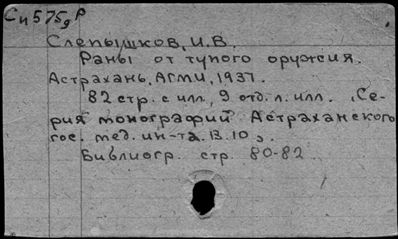 Сп575д Р
Слепышков, И.В.
Раны от тупого оружия.
Астрахань, АГМИ, 1937.
82 стр. с илл, 9 отд. л. илл. (Се-
рия монографий Астраханского
гос. мед. ин-та. В. 10).
Библиогр. стр. 80-82